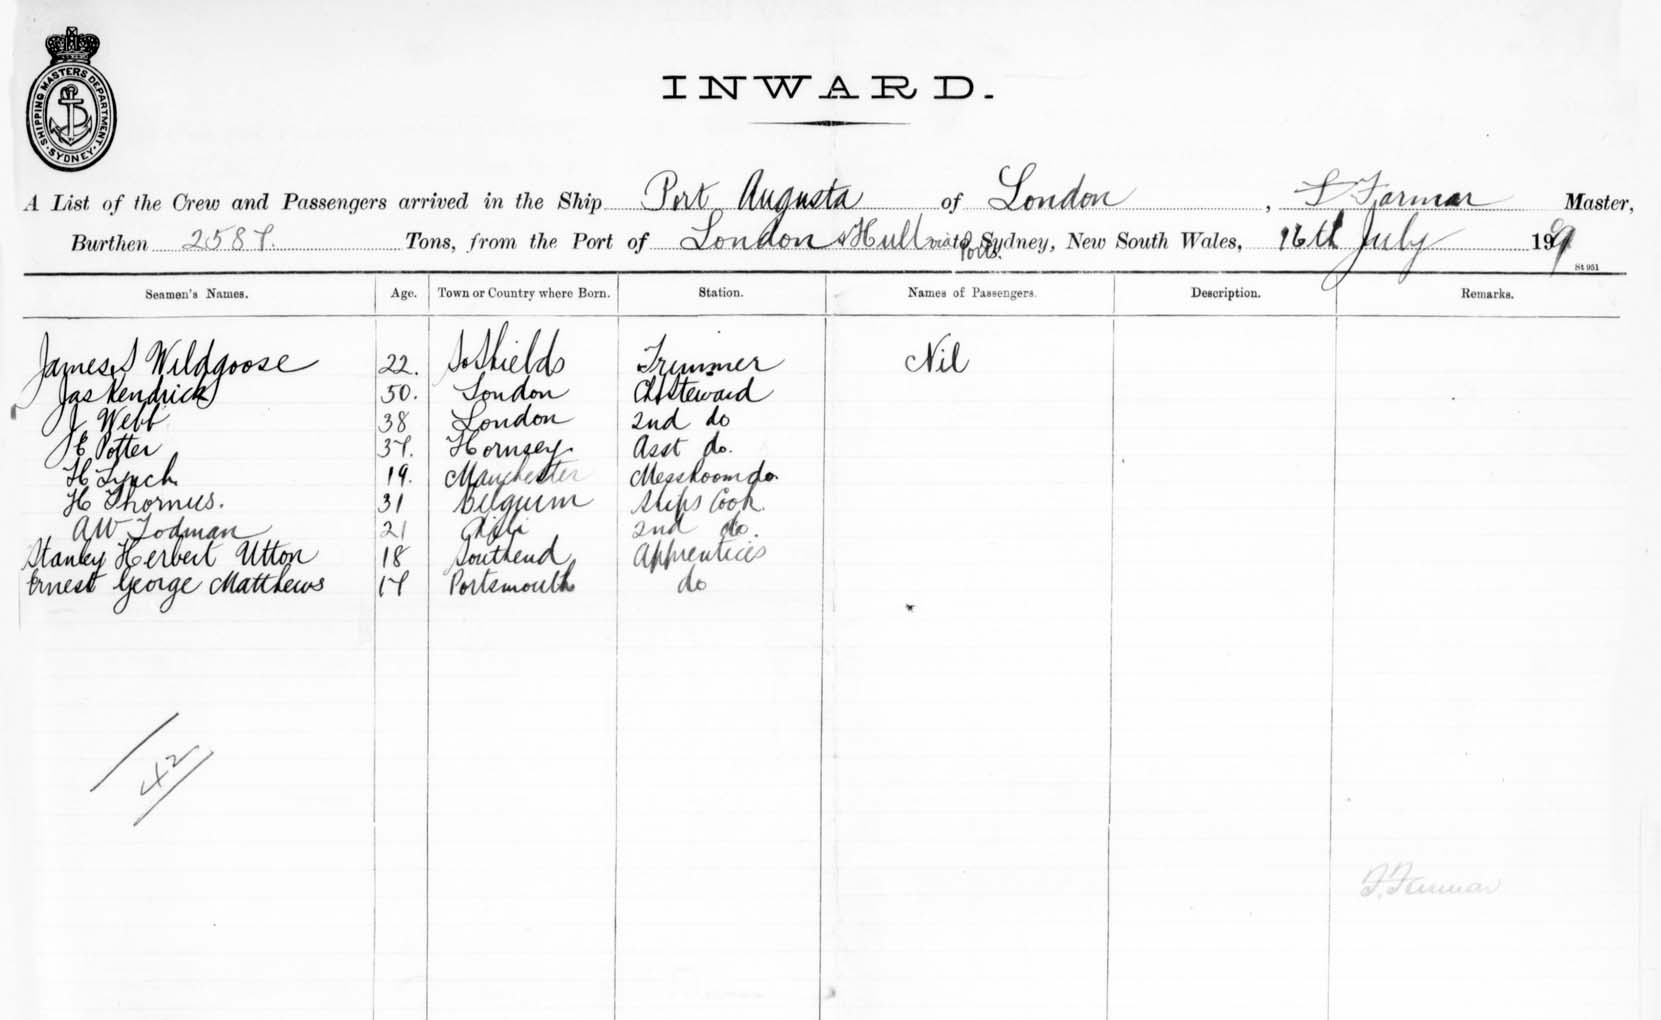 SHIPPING MASTERS DEPARTMENT · SYDNEY ·
INWARD.
A List of the Crew and Passengers arrived in the Ship Port Augusta of London, F Farmar Master,
Burthen 2587. Tons, from the Port of London & Hull via Ports. to Sydney, New South Wales, 16th July 19
St 951
Seamen's Names. Age. Town or Country where Born. Station. Names of Passengers. Description. Remarks.
James S Wildgoose 22. So Shields Trimmer Nil
Jas Kendrick 50. London Ch Steward
J Webb 38 London 2nd do
E Potter 37. Hornsey. Asst do.
H Lynch 19. Manchester Messroom do.
H Thornus. 31 Belgium Ships Cook.
AW Todman 21 2nd do.
Stanley Herbert Utton 18 Southend Apprentices
Ernest George Matthews 17 Portsmouth do
42
F. Farmar